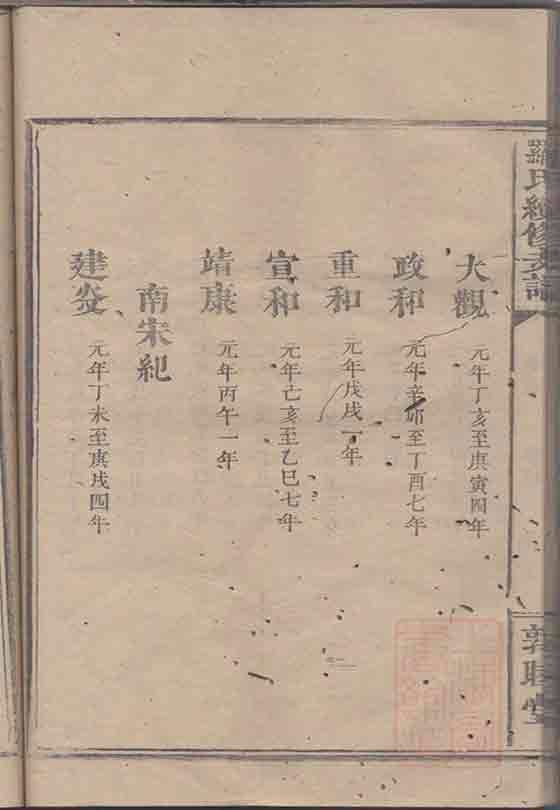 羅氏續修支譜
大觀 元年丁亥至庚寅四年
政和 元年辛卯至丁酉七年
重和 元年戊戌一年
宣和 元年己亥至乙巳七年
靖康 元年丙午一年
南宋紀
建炎 元年丁未至庚戌四年
敦睦堂